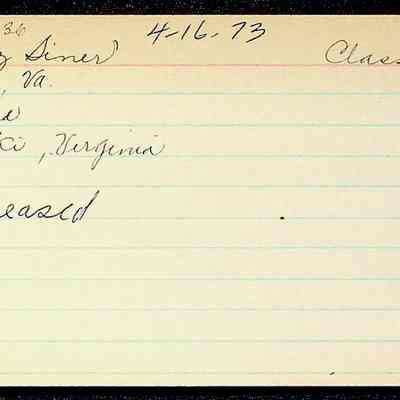 36 4-16-73
g Diner Class
, Va.
a
ki, Virginia
eased